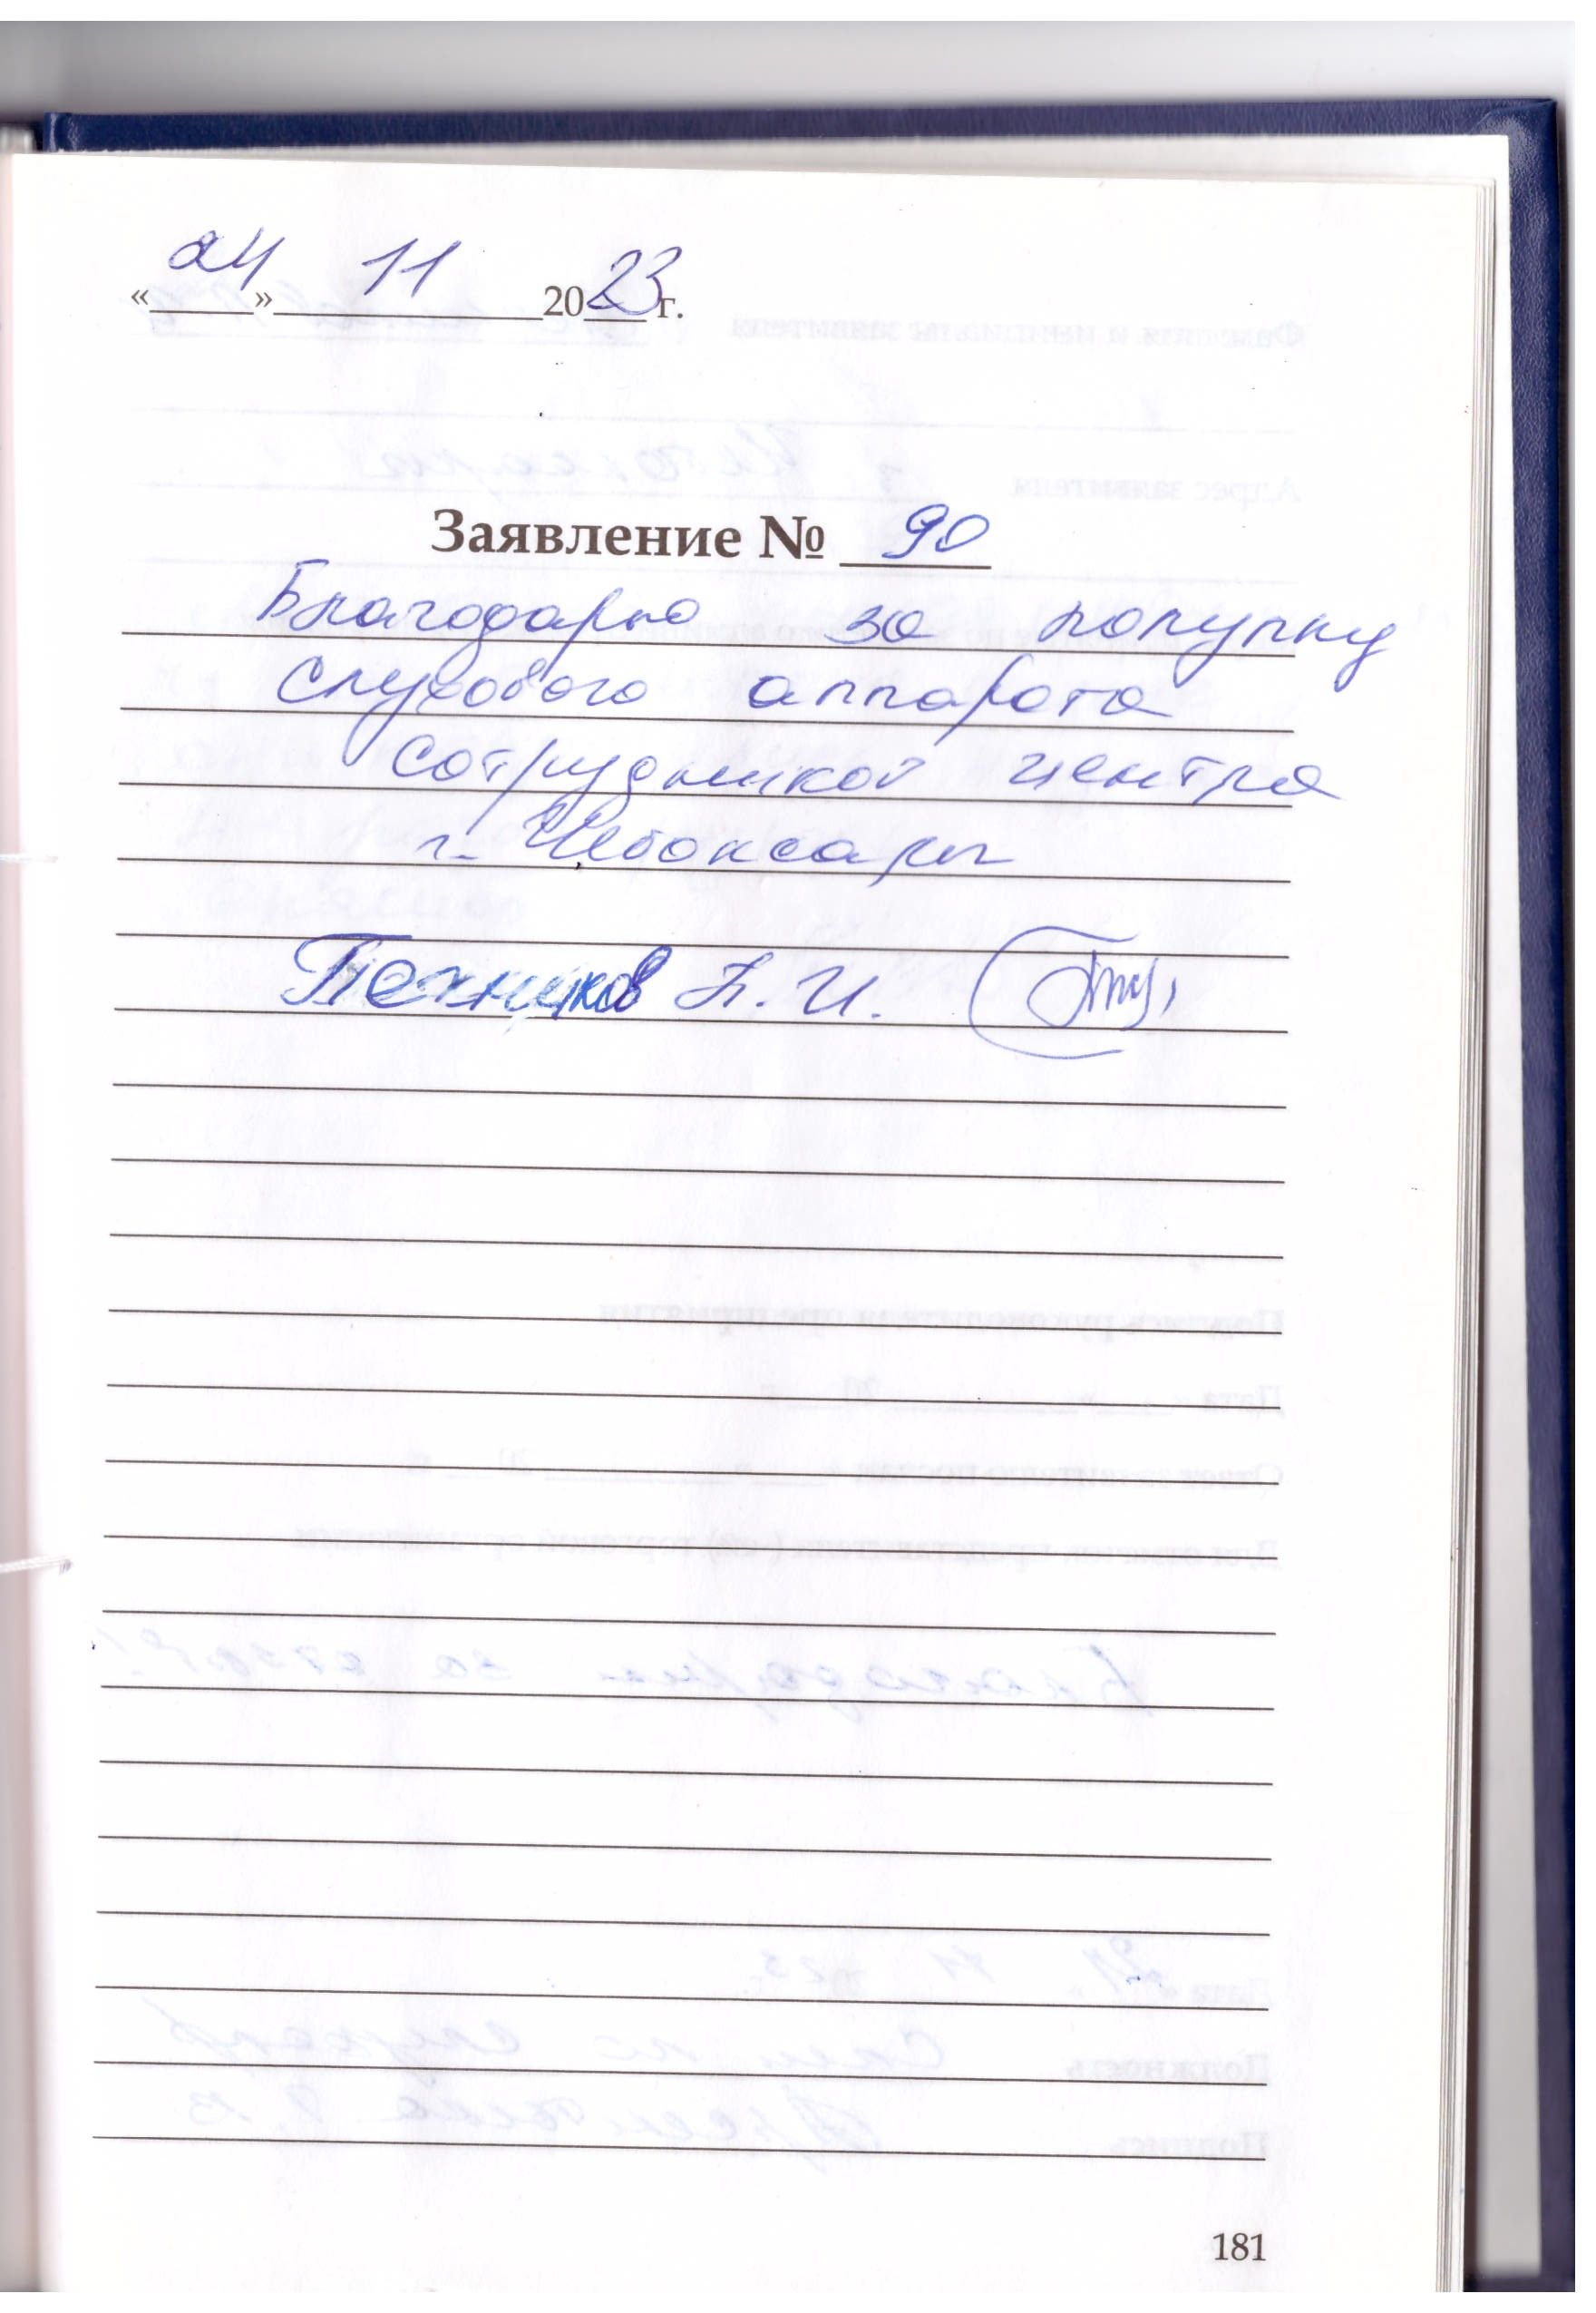 «24» 11 2023 г.
Заявление № 90
Благодарю за покупку
слухового аппарата
сотрудников центра
г. Чебоксары
Н. И.
181